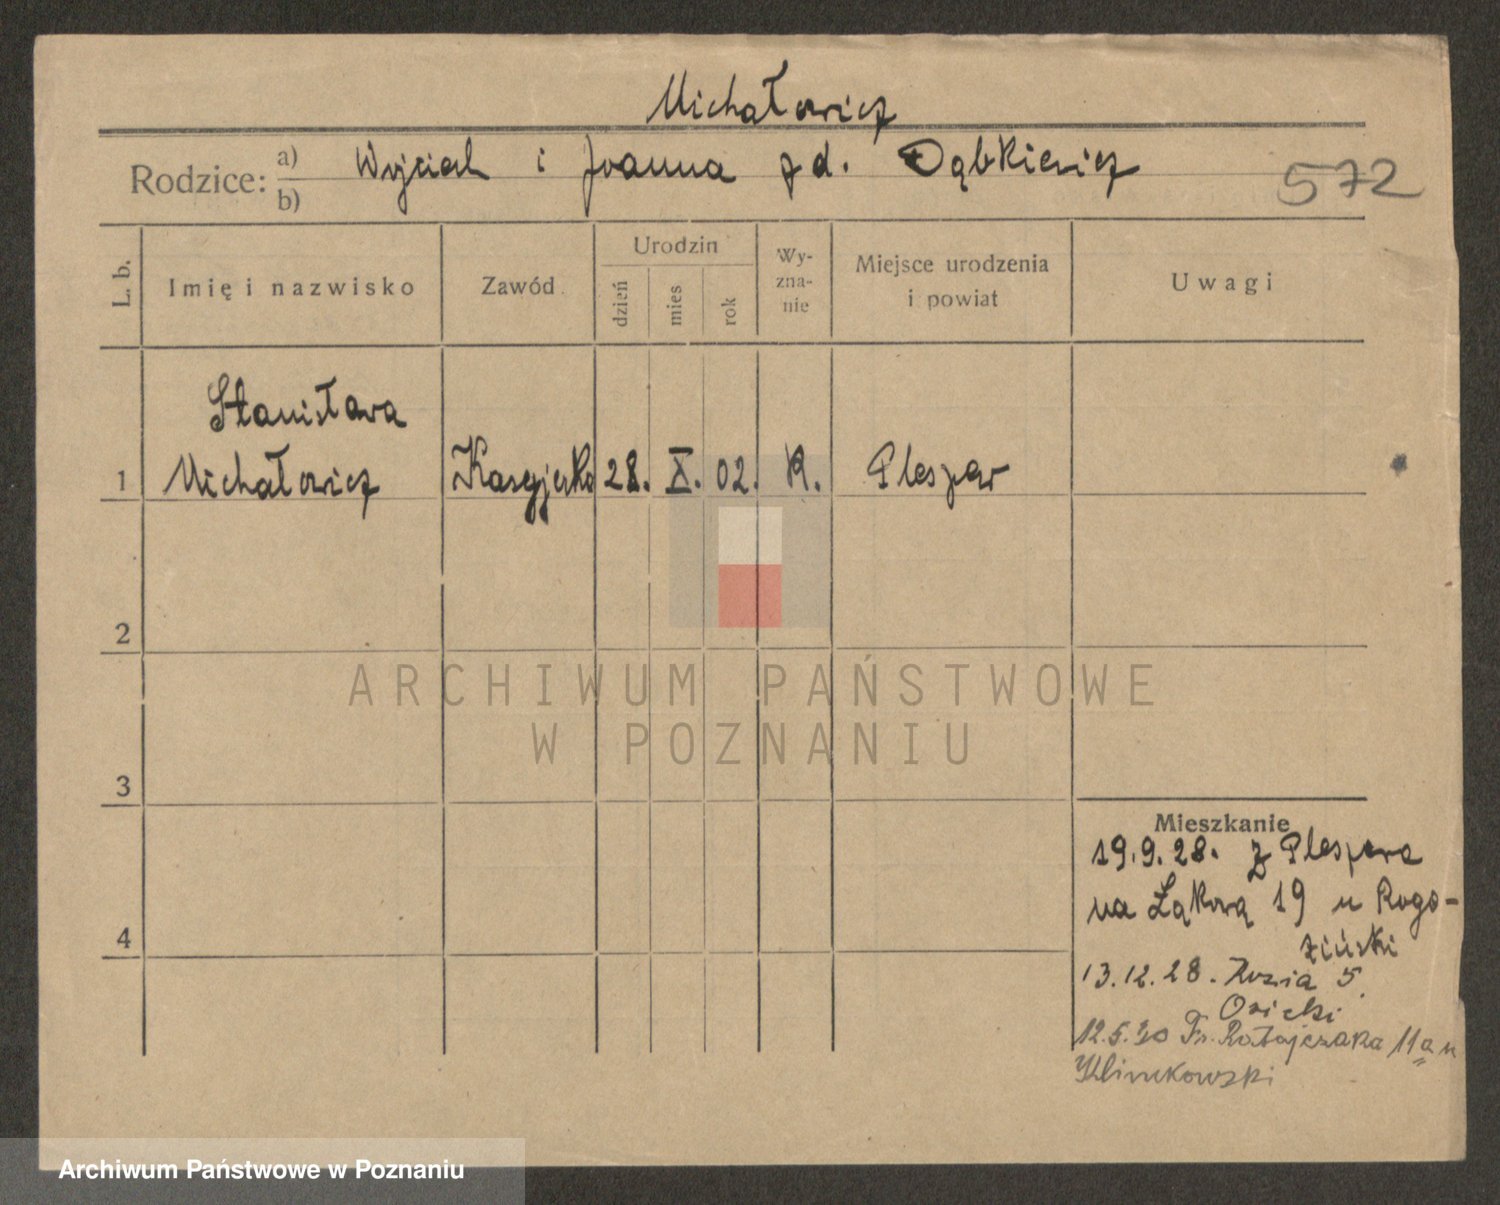 Michałowicz
Rodzice: a) b) Wojciech i Joanna z d. Dąbkiewicz 572
L. b. Imię i nazwisko Zawód Urodzin dzień mies rok Wy-zna-nie Miejsce urodzenia i powiat Uwagi
Stanisława
1 Michałowicz Kasyjerka 28. X. 02. K. Pleszew
2
ARCHIWUM PAŃSTWOWE
W POZNANIU
3
Mieszkanie
19.9.28. z Pleszewa
na Łąkową 19 u Rogo-
4
ziński
13.12.28. 5.
Osicki
12.5.30 Fr. Ratajczaka 11a u
Klimkowski
Archiwum Państwowe w Poznaniu